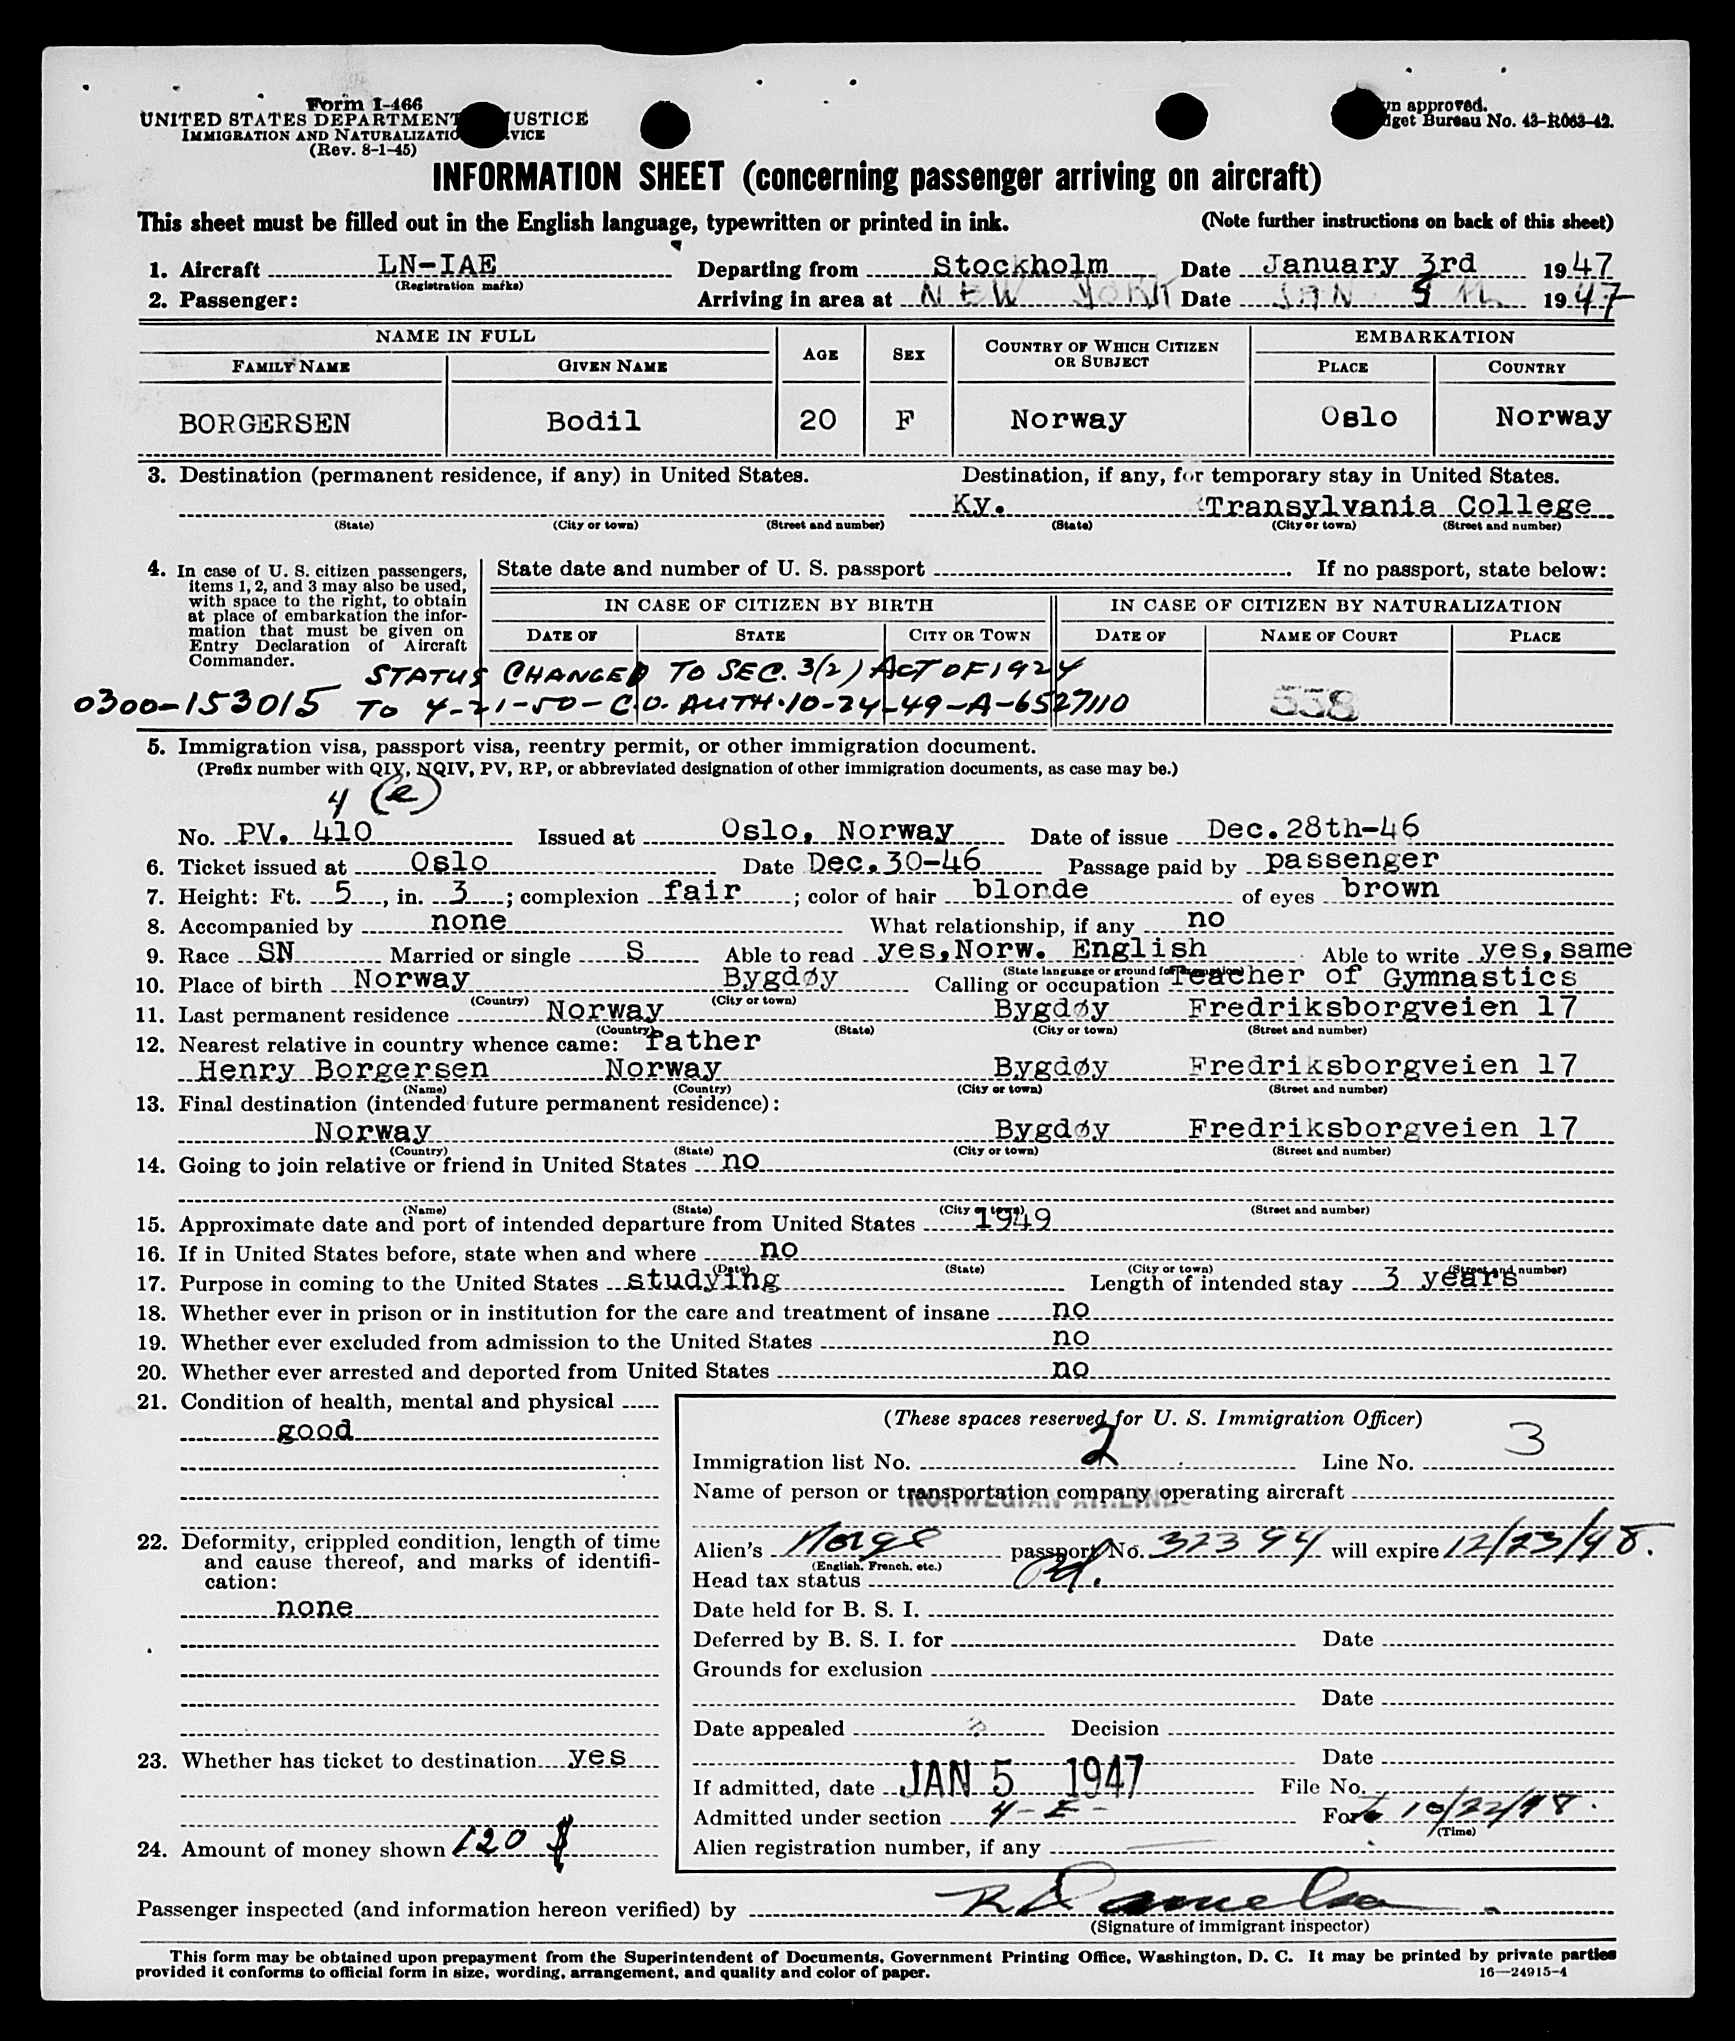 Form I-466
UNITED STATES DEPARTMENT USTICE
IMMIGRATION AND NATURALIZATIO VICE
(Rev. 8-1-45)
n approved.
get Bureau No. 43-R063-42.
INFORMATION SHEET (concerning passenger arriving on aircraft)
This sheet must be filled out in the English language, typewritten or printed in ink. (Note further instructions on back of this sheet)
1. Aircraft LN-IAE Departing from Stockholm Date January 3rd 1947
(Registration marks)
2. Passenger: Arriving in area at NEW YORK Date JAN 1947
NAME IN FULL AGE SEX COUNTRY OF WHICH CITIZEN OR SUBJECT EMBARKATION
FAMILY NAME GIVEN NAME PLACE COUNTRY
BORGERSEN Bodil 20 F Norway Oslo Norway
3. Destination (permanent residence, if any) in United States. Destination, if any, for temporary stay in United States.
Ky. Transylvania College
(State) (City or town) (Street and number) (State) (City or town) (Street and number)
4. In case of U. S. citizen passengers, items 1, 2, and 3 may also be used, with space to the right, to obtain at place of embarkation the information that must be given on Entry Declaration of Aircraft Commander.
State date and number of U. S. passport . If no passport, state below:
IN CASE OF CITIZEN BY BIRTH IN CASE OF CITIZEN BY NATURALIZATION
DATE OF STATE CITY OR TOWN DATE OF NAME OF COURT PLACE
STATUS CHANGED TO SEC. 3(2) ACT OF 1924
0300-153015 TO 4-21-50-C.O. AUTH. 10-24-49-A-6527110 538
5. Immigration visa, passport visa, reentry permit, or other immigration document.
(Prefix number with QIV, NQIV, PV, RP, or abbreviated designation of other immigration documents, as case may be.)
4 (e)
No. PV. 410 Issued at Oslo, Norway Date of issue Dec.28th-46
6. Ticket issued at Oslo Date Dec.30-46 Passage paid by passenger
7. Height: Ft. 5, in. 3; complexion fair; color of hair blonde of eyes brown
8. Accompanied by none What relationship, if any no
9. Race SN Married or single S Able to read yes,Norw. English Able to write yes,same
(State language or ground for exemption)
10. Place of birth Norway Bygdøy Calling or occupation Teacher of Gymnastics
(Country) (City or town)
11. Last permanent residence Norway Bygdøy Fredriksborgveien 17
(Country) (State) (City or town) (Street and number)
12. Nearest relative in country whence came: father
Henry Borgersen Norway Bygdøy Fredriksborgveien 17
(Name) (Country) (City or town) (Street and number)
13. Final destination (intended future permanent residence):
Norway Bygdøy Fredriksborgveien 17
(Country) (State) (City or town) (Street and number)
14. Going to join relative or friend in United States no
(Name) (State) (City or town) (Street and number)
15. Approximate date and port of intended departure from United States 1949
16. If in United States before, state when and where no
(Date) (State) (City or town) (Street and number)
17. Purpose in coming to the United States studying Length of intended stay 3 years
18. Whether ever in prison or in institution for the care and treatment of insane no
19. Whether ever excluded from admission to the United States no
20. Whether ever arrested and deported from United States no
21. Condition of health, mental and physical
good
22. Deformity, crippled condition, length of time and cause thereof, and marks of identification:
none
23. Whether has ticket to destination yes
24. Amount of money shown 120 $
(These spaces reserved for U. S. Immigration Officer)
Immigration list No. 2 Line No. 3
Name of person or transportation company operating aircraft
NORWEGIAN AIRLINES
Alien's Norge passport No. 32394 will expire 12/23/48.
(English, French, etc.)
Head tax status
Date held for B. S. I.
Deferred by B. S. I. for Date
Grounds for exclusion
Date
Date appealed Decision
Date
If admitted, date JAN 5 1947 File No.
Admitted under section 4-E- For to 10/22/48.
(Time)
Alien registration number, if any
Passenger inspected (and information hereon verified) by
(Signature of immigrant inspector)
This form may be obtained upon prepayment from the Superintendent of Documents, Government Printing Office, Washington, D. C. It may be printed by private parties
provided it conforms to official form in size, wording, arrangement, and quality and color of paper. 16—24915-4